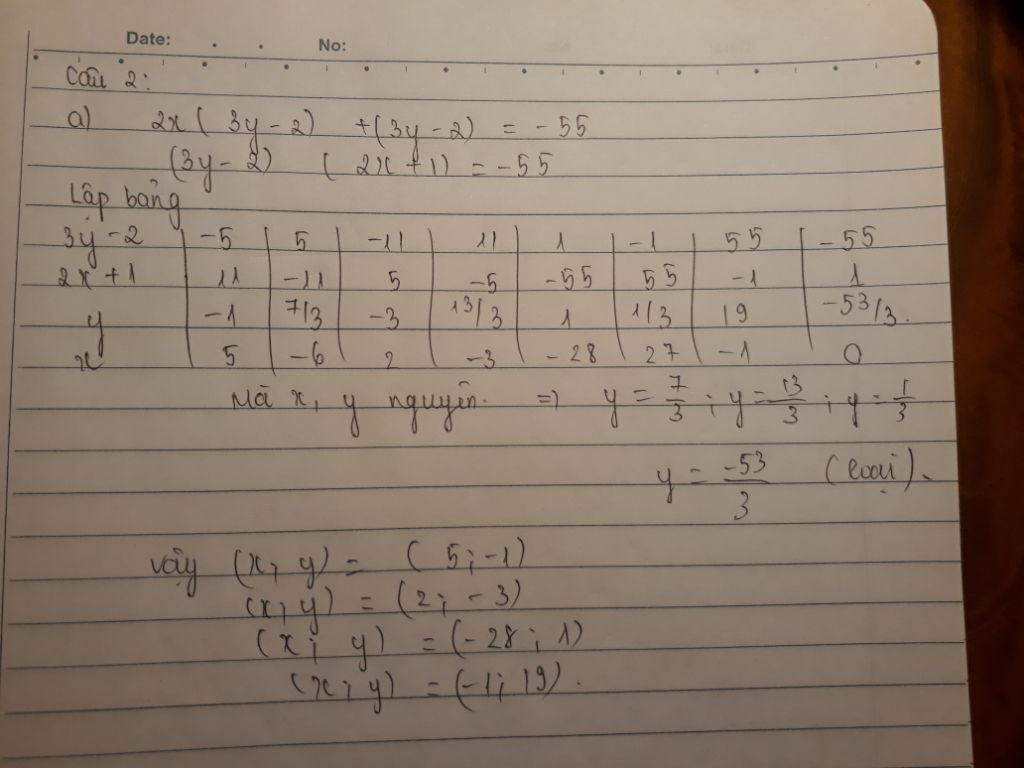 Date: No:
Câu 2:
a) 2x ( 3y - 2) + (3y - 2) = - 55
(3y - 2) ( 2x + 1) = - 55
Lập bảng
3y - 2 | -5 | 5 | -11 | 11 | 1 | -1 | 55 | -55
2x + 1 | 11 | -11 | 5 | -5 | -55 | 55 | -1 | 1
y | -1 | 7/3 | -3 | 13/3 | 1 | 1/3 | 19 | -53/3.
x | 5 | -6 | 2 | -3 | -28 | 27 | -1 | 0
Mà x, y nguyên. => y = 7/3 ; y = 13/3 ; y = 1/3
y = -53/3 (loại).
vậy (x; y) = ( 5; -1)
(x; y) = (2; -3)
(x; y) = (-28 ; 1)
(x; y) = (-1; 19).